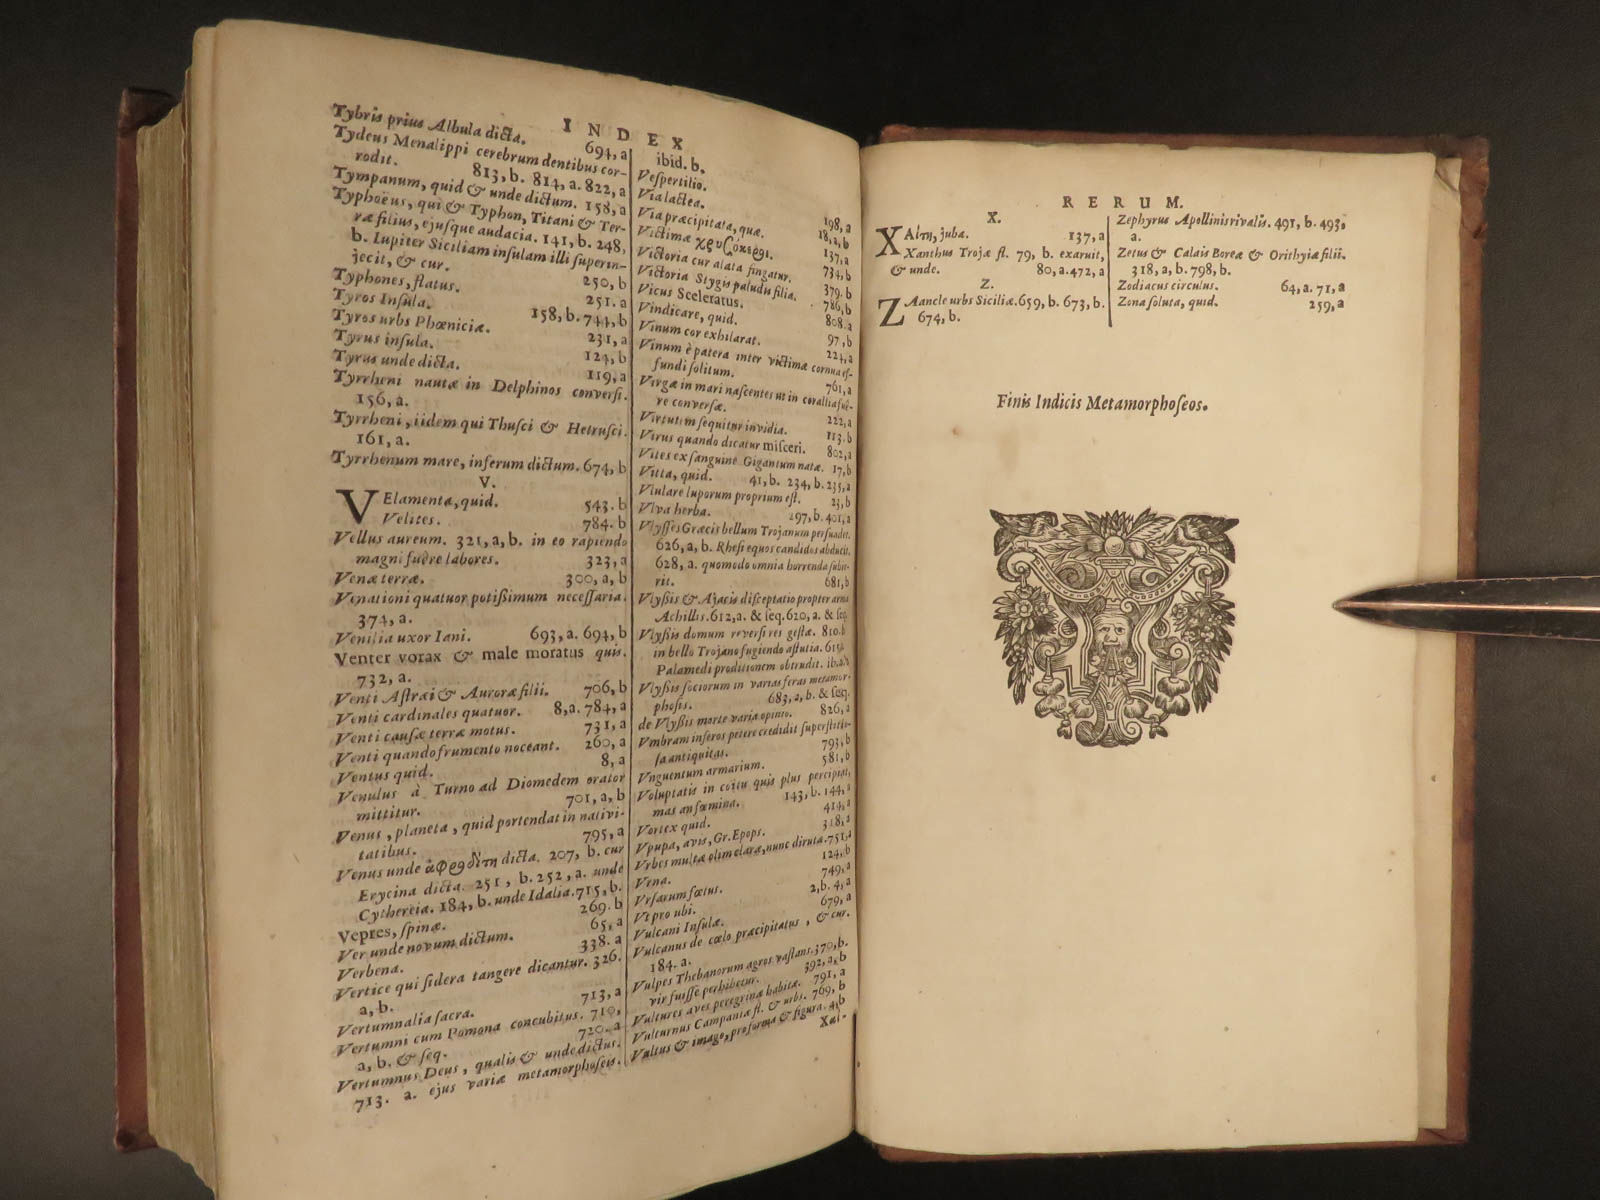 INDEX
Tybris prius Albula dicta. 694, a
Tydeus Menalippi cerebrum dentibus cor-
rodit. 813, b. 814, a. 822, a
Tympanum, quid & unde dictum. 158, a
Typhoëus, qui & Typhon, Titani & Ter-
ræ filius, ejusque audacia. 141, b. 248,
b. Iupiter Siciliam insulam illi superin-
jecit, & cur. 250, b
Typhones, flatus. 251. a
Tyros Insula. 158, b. 744, b
Tyros urbs Phœniciæ. 231, a
Tyrus insula. 124, b
Tyrus unde dicta. 119, a
Tyrrheni nautæ in Delphinos conversi.
156, a.
Tyrrheni, iidem qui Thusci & Hetrusci.
161, a.
Tyrrhenum mare, inferum dictum. 674, b
V.
VElamenta, quid. 543. b
Velites. 784. b
Vellus aureum. 321, a, b. in eo rapiendo
magni fuere labores. 323, a
Venæ terræ. 300, a, b
Venationi quatuor potissimum necessaria.
374, a.
Venilia uxor Iani. 693, a. 694, b
Venter vorax & male moratus quis.
732, a.
Venti Astræi & Auroræ filii. 706, b
Venti cardinales quatuor. 8, a. 784, a
Venti causæ terræ motus. 731, a
Venti quando frumento noceant. 260, a
Ventus quid. 8, a
Venulus à Turno ad Diomedem orator
mittitur. 701, a, b
Venus, planeta, quid portendat in nativi-
tatibus. 795, a
Venus unde ἀφροδίτη dicta. 207, b. cur
Erycina dicta. 251, b. 252, a. unde
Cythereia. 184, b. unde Idalia. 715, b.
Vepres, spinæ. 269. b
Ver unde novum dictum. 65, a
Verbena. 338. a
Vertice qui sidera tangere dicantur. 326.
a, b.
Vertumnalia sacra. 713, a
Vertumni cum Pomona concubitus. 710,
a, b. & seq. 720. a
Vertumnus Deus, qualis & unde dictus.
713. a. ejus variæ metamorphoseis.
ibid. b.
Vespertilio.
Via lactea. 198, a
Via præcipitata, quæ. 18, a, b
Victimæ 137, a
Victoria cur alata fingatur. 734, b
Victoria Stygis paludis filia. 379. b
Vicus Sceleratus. 786, b
Vindicare, quid. 808. a
Vinum cor exhilarat. 97, b
Vinum è patera inter victimæ cornua ef-
fundi solitum. 224, a
Virgæ in mari nascentes ut in corallia fue-
re conversæ. 761, a
Virtutem sequitur invidia. 222, a
Virus quando dicatur misceri. 113. b
Vites ex sanguine Gigantum natæ. 802, a
Vitta, quid. 17, b
41, b. 234, b. 235, a
Vlulare luporum proprium est. 23, b
Vlva herba. 297, b. 401, a
Vlysses Græcis bellum Trojanum persuadet.
626, a, b. Rhesi equos candidos abducit.
628, a. quomodo omnia horrenda subie-
rit. 681, b
Vlyssis & Ajacis disceptatio propter arma
Achillis. 612, a. & seq. 620, a. & seq.
Vlyssis domum reversi res gestæ. 810. b
in bello Trojano fugiendo astutia. 615,
Palamedi proditionem obtrudit. ib. a, b
Vlyssis sociorum in varias feras metamor-
phosis. 683, a, b. & seq.
de Vlyssis morte varia opinio. 826, a
Vmbram inferos petere credidit superstitio-
sa antiquitas. 793, b
Vnguentum armarium. 581, b
Voluptatis in coitu quis plus percipiat,
mas an fœmina. 143, b. 144, a
Vortex quid. 414, a
Vpupa, avis, Gr. Epops. 318, a
Vrbes multæ olim claræ, nunc dirutæ. 751, a
Vrna. 124, b
Vrsarum fœtus. 749, a
Vt pro ubi. 2, b. 4, a
Vulcani Insulæ. 679, a
Vulcanus de cœlo præcipitatus, & cur.
184. a.
Vulpes Thebanorum agros vastans. 370, b.
vir fuisse perhibetur. 392, a, b
Vultures aves peregrinæ habitæ. 791, a
Vulturnus Campaniæ fl. & urbs. 769, b
Vultus & imago, pro forma & figura. 4, b
Xal-
RERUM.
X.
XAίτη, juba. 137, a
Xanthus Trojæ fl. 79, b. exaruit,
& unde. 80, a. 472, a
Z.
ZAancle urbs Siciliæ. 659, b. 673, b.
674, b.
Zephyrus Apollinis rivalis. 491, b. 493.
a.
Zetus & Calais Boreæ & Orithyiæ filii.
318, a, b. 798, b.
Zodiacus circulus. 64, a. 71, a
Zona soluta, quid. 259, a
Finis Indicis Metamorphoseos.